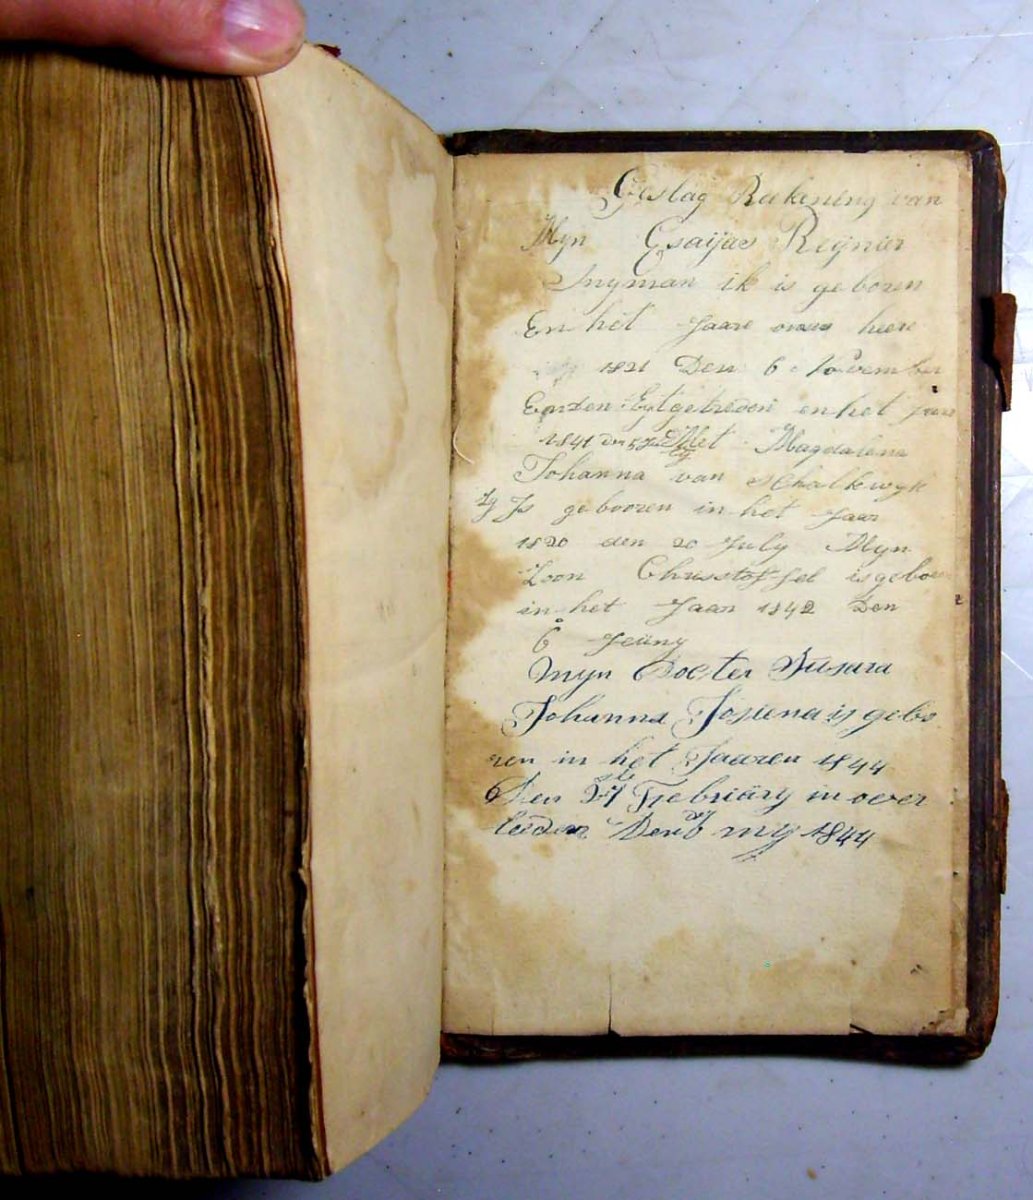 Geslag Reekening van
Myn Esaijas Reijnier
Snyman ik is geboren
En het Jaare onses heere
1821 Den 6 November
Enden Egt getreden en het jaar
1841 den 5 Met Magdalena
Johanna van schalkwyk
Zy Is gebooren in het Jaar
1820 den 20 July Myn
Zoon Christoffel is gebo
in het Jaar 1842 Den
6 Jeuny
Myn Docter Susara
Johanna Josiena is gebo
ren in het Jaaren 1844
Den Febriary in over
leeden Den 6 my 1844